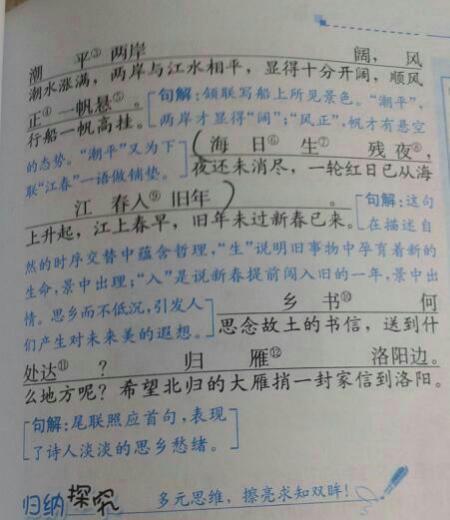 潮 平③ 两岸 阔，风
潮水涨满，两岸与江水相平，显得十分开阔，顺风
正④ 一帆悬⑤。
行船一帆高挂。
句解：颔联写船上所见景色。“潮平”，
两岸才显得“阔”；“风正”，帆才有悬空
的态势。“潮平”又为下
联“江春”一语做铺垫。
海 日⑥ 生⑦ 残 夜⑧，
夜还未消尽，一轮红日已从海
江 春入⑨ 旧年 。
上升起，江上春早，旧年未过新春已来。
句解：这句
在描述自
然的时序交替中蕴含哲理，“生”说明旧事物中孕育着新的
生命，景中出理；“入”是说新春提前闯入旧的一年，景中出
情。思乡而不低沉，引发人
们产生对未来美的遐想。
乡 书⑩ 何
思念故土的书信，送到什
处达⑪ ？ 归 雁⑫ 洛阳边。
么地方呢？希望北归的大雁捎一封家信到洛阳。
句解：尾联照应首句，表现
了诗人淡淡的思乡愁绪。
归纳探究 多元思维，擦亮求知双眸！